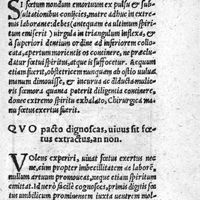 Si fœtum nondum emortuum ex pulsu & sub-
sultationibus conijcies, matre adhuc in extre-
mis laborare debet (antequam ea ultimum spiri-
tum emiserit) uirgula in triangulum inflexa, &
à superiori dentium ordine ad inferiorem colloc
cata, apertum morientis os contineri, ne præclu-
ditur fœtui spiritus, atque is suffocetur.
etiam fuerit, obstetricem nequaquam in osculo uului
manum dimouisse, & incuruis ac diductis mulie-
ris fœmora quanta poterit diligentia continere,
donec extremo spiritu exhalato, Chirurgica ma-
nu fœtus exertus fuerit.
QVO pacto dignoscas, uiuus sit fœ-
tus extractus, an non.
Volens experiri, uiuat fœtus exertus nec
ne, cum propter imbecillitatem ac laborē,
nullum artuum promoueat, neque etiam spiritum
emittat. Id uero facile cognosces, primis digitis fœ-
tus umbilicum prementem iuxta